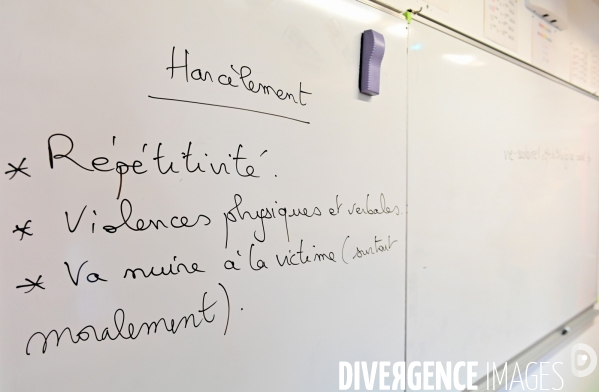 Harcèlement
* Répétitivité.
* Violences physiques et verbales.
* Va nuire à la victime (surtout
moralement).
DIVERGENCE IMAGES